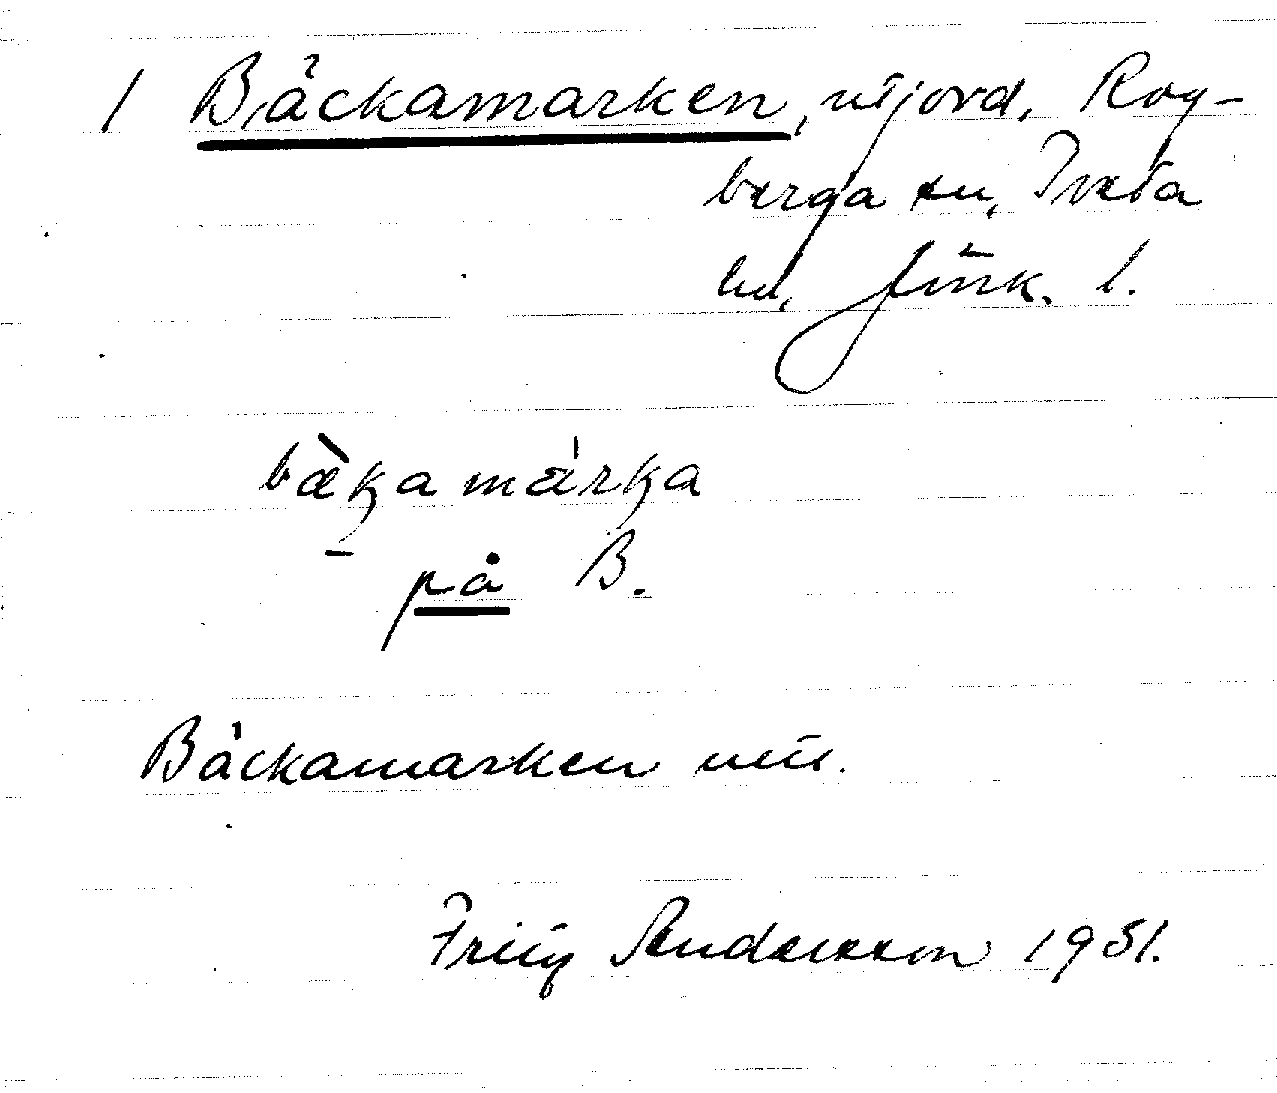 1 Bäckamarken, utjord, Rog-
berga sn, Tveta
hd, Jönk. l.
bækamarka
på B.
Bäckamarken utj.
Fritz Andersson 1951.